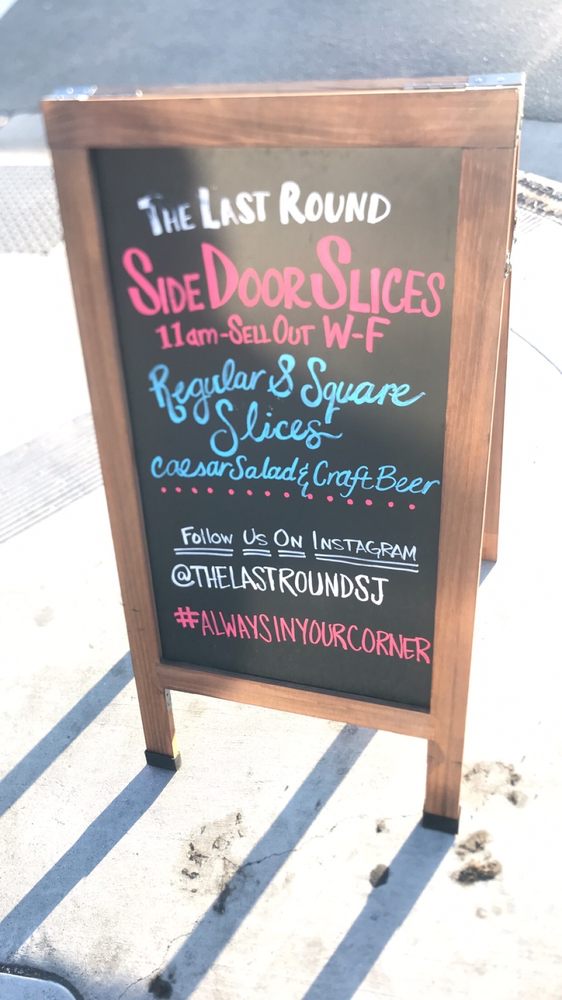 THE LAST ROUND
SIDE DOOR SLICES
11am-SELL OUT W-F
Regular & Square
Slices
Caesar Salad & Craft Beer
FOLLOW US ON INSTAGRAM
@THELASTROUNDSJ
#ALWAYSINYOURCORNER